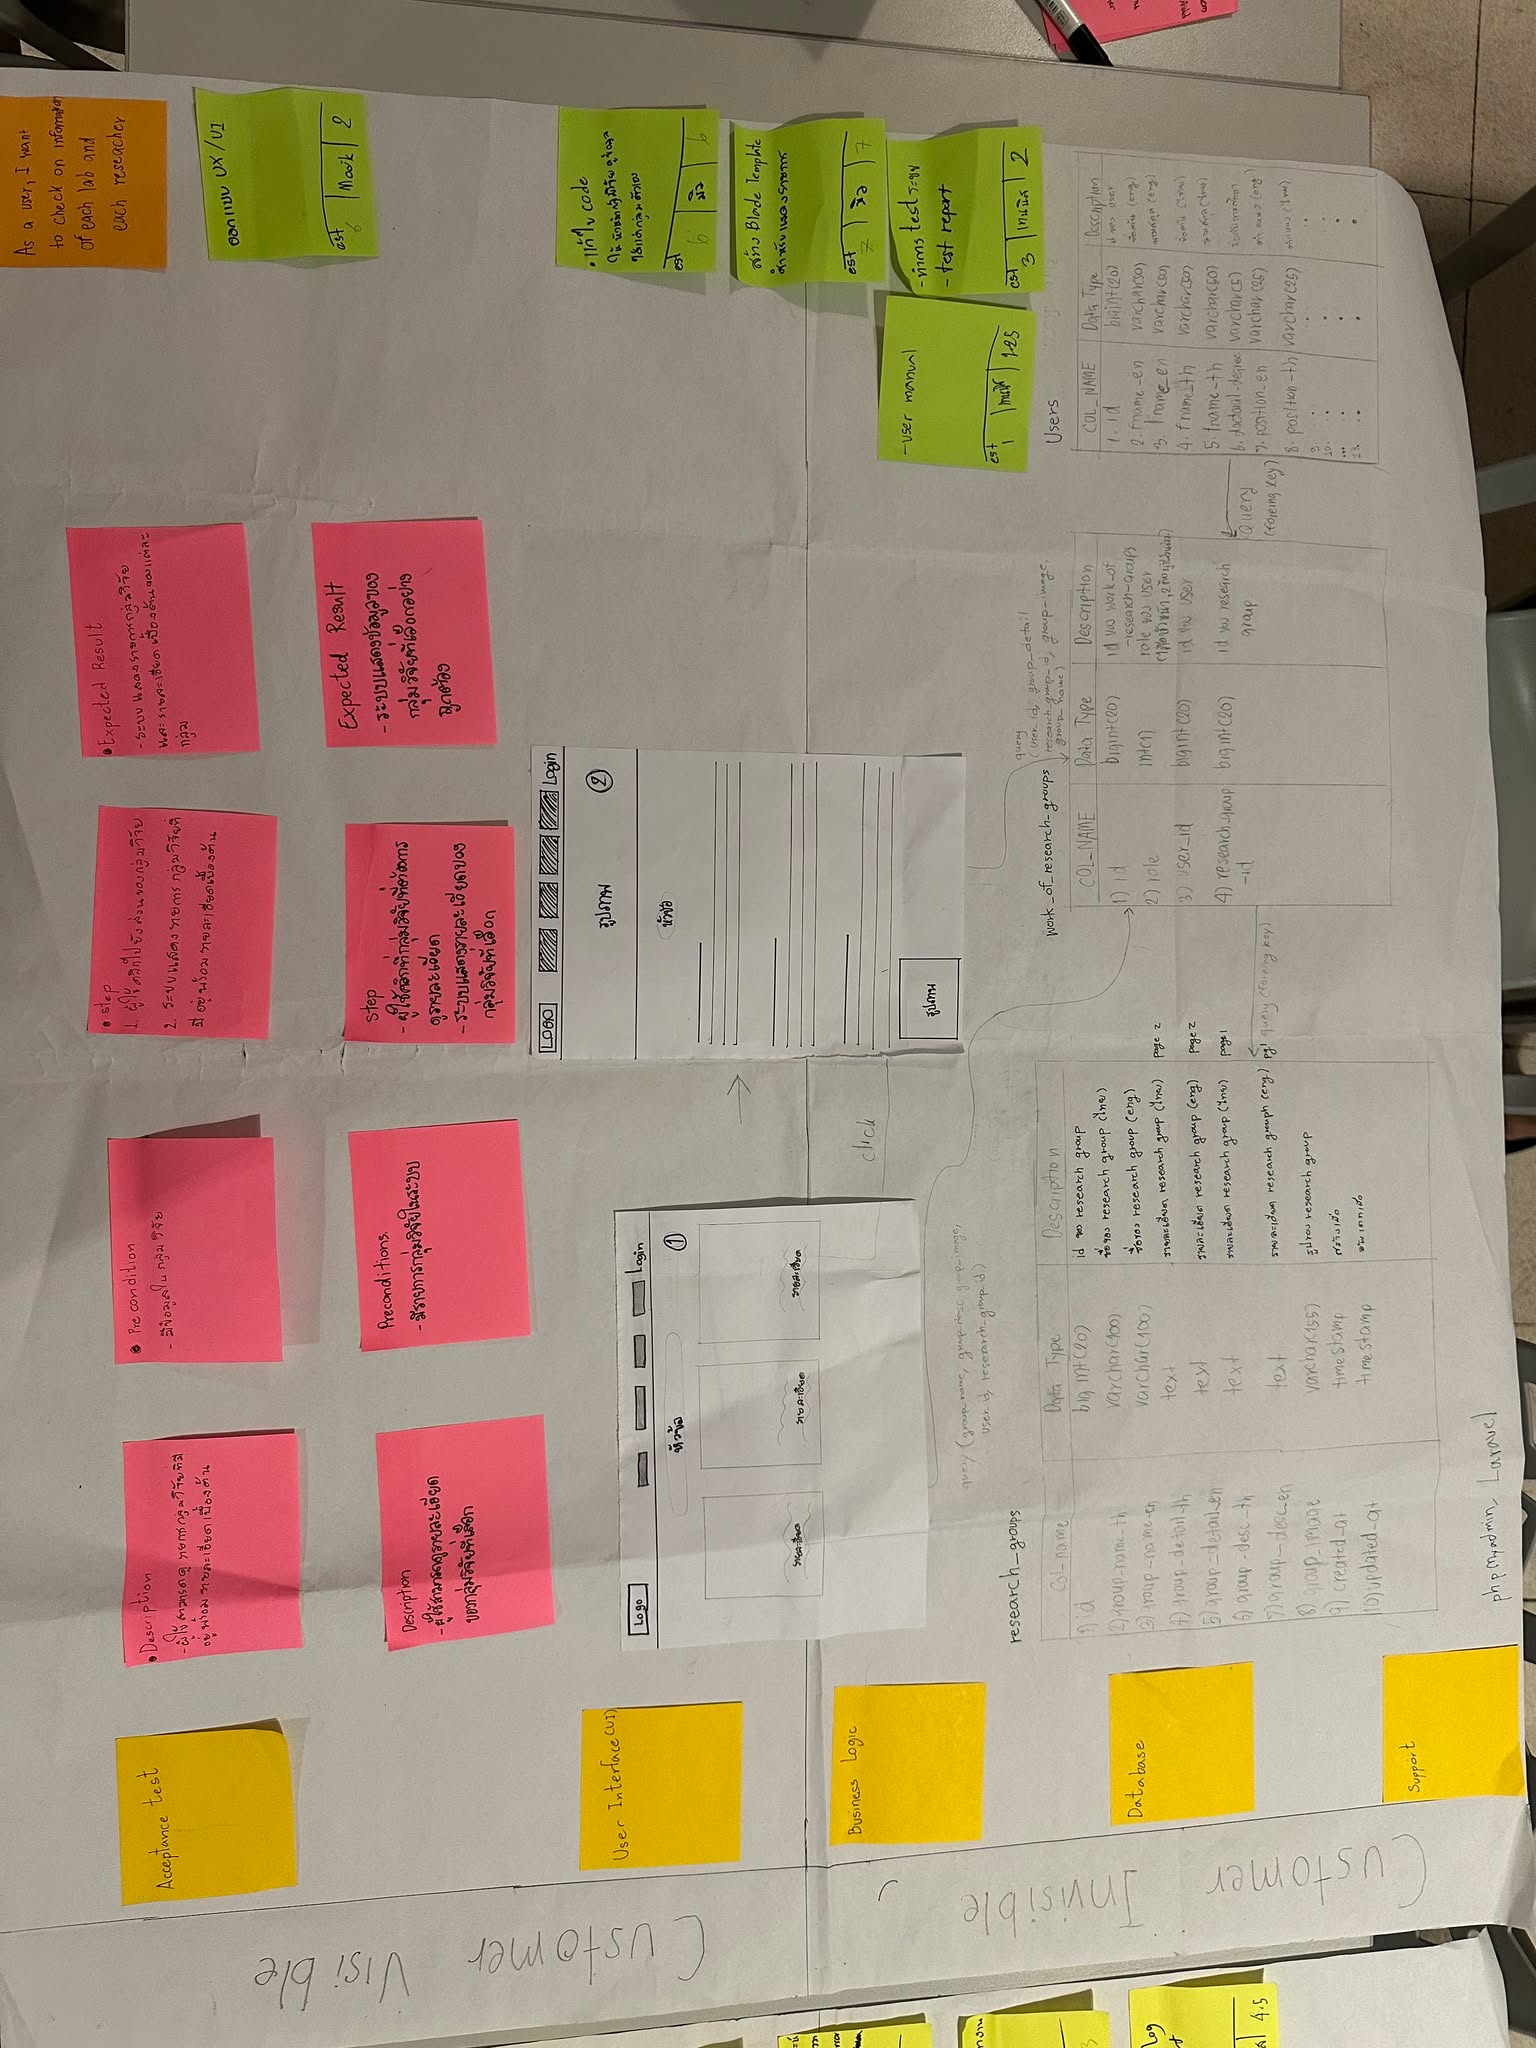 As a user, I want
to check on information
of each lab and
each reseacher
Customer Visible
Customer Invisible
Acceptance test
• Description
- ผู้ใช้สามารถดูรายการกลุ่มวิจัยที่มี
อยู่พร้อมรายละเอียดเบื้องต้น
• Pre condition
- มีข้อมูลในกลุ่มวิจัย
• Step
1. ผู้ใช้คลิกไปยังส่วนของกลุ่มวิจัย
2. ระบบแสดงรายการกลุ่มวิจัยที่
มีอยู่พร้อมรายละเอียดเบื้องต้น
• Expected Result
- ระบบแสดงรายการกลุ่มวิจัย
และรายละเอียดเบื้องต้นของแต่ละ
กลุ่ม
Description
- ผู้ใช้สามารถดูรายละเอียด
ของกลุ่มวิจัยที่เลือก
Preconditions.
- มีรายการกลุ่มวิจัยในระบบ
Step
- ผู้ใช้คลิกที่กลุ่มวิจัยที่ต้องการ
ดูรายละเอียด
- ระบบแสดงรายละเอียดของ
กลุ่มวิจัยที่เลือก
Expected Result
- ระบบแสดงข้อมูลของ
กลุ่มวิจัยที่เลือกอย่าง
ถูกต้อง
ออกแบบ UX/UI
est 6 | Mook | 2
User Interface(UI)
Logo Login
หัวข้อ 1
รายละเอียด รายละเอียด รายละเอียด
click
LOGO Login
รูปภาพ 2
หัวข้อ
รูปภาพ
• แก้ไข code
ให้หัวหน้ากลุ่มวิจัยดูข้อมูล
ได้แค่กลุ่มตัวเอง
est 6 | มิว | 6
สร้าง Blade Template
สำหรับแสดงรายการ
est 7 | มิว | 7
- user manual
est 1 | เทนนิส | 1.25
- ทำการ test ระบบ
- test report
est 3 | เทนนิส | 2
Business Logic
query (group_name, group_desc group_image,
user_id, research_group_id)
query
(user_id, group_detail
research_group_id, group_image,
group_name)
Database
research_groups
Col_name Data Type Description
1) id big int(20) id ของ research group
2) group-name_th varchar(100) ชื่อของ research group (ไทย)
3) group-name-en varchar(100) ชื่อของ research group (eng)
4) group-detail-th text รายละเอียด research group (ไทย) page 2
5) group-detail_en text รายละเอียด research group (eng) page 2
6) group-desc-th text รายละเอียด research group (ไทย) page 1
7) group-desc_en text รายละเอียด research grouph (eng) pg1
8) group_image varchar(155) รูปของ research group
9) created_at timestamp สร้างเมื่อ
10) updated_at timestamp อัพเดทเมื่อ
query (foreing key)
work_of_research_groups
COL_NAME Data Type Description
1) id bigint(20) id ของ work_of
-research-groups
2) role int(1) role ของ user
3) user_id bigint(20) id ของ user
4) research_group bigint(20) id ของ research
-id group
Query
(foreing key)
Users
COL_NAME Data Type Description
1. id bigint(20) id ของ user
2. fname_en varchar(50) ชื่อต้น (eng)
3. lname_en varchar(50) นามสกุล (eng)
4. fname_th varchar(50) ชื่อต้น (ไทย)
5. lname-th varchar(50) นามสกุล (ไทย)
6. doctoral-degree varchar(5)
7. position_en varchar(25) ตำแหน่ง (eng)
8. position-th varchar(25) ตำแหน่ง (ไทย)
9
10.
...
23.
Support
phpMyadmin, Laravel
log
4.5